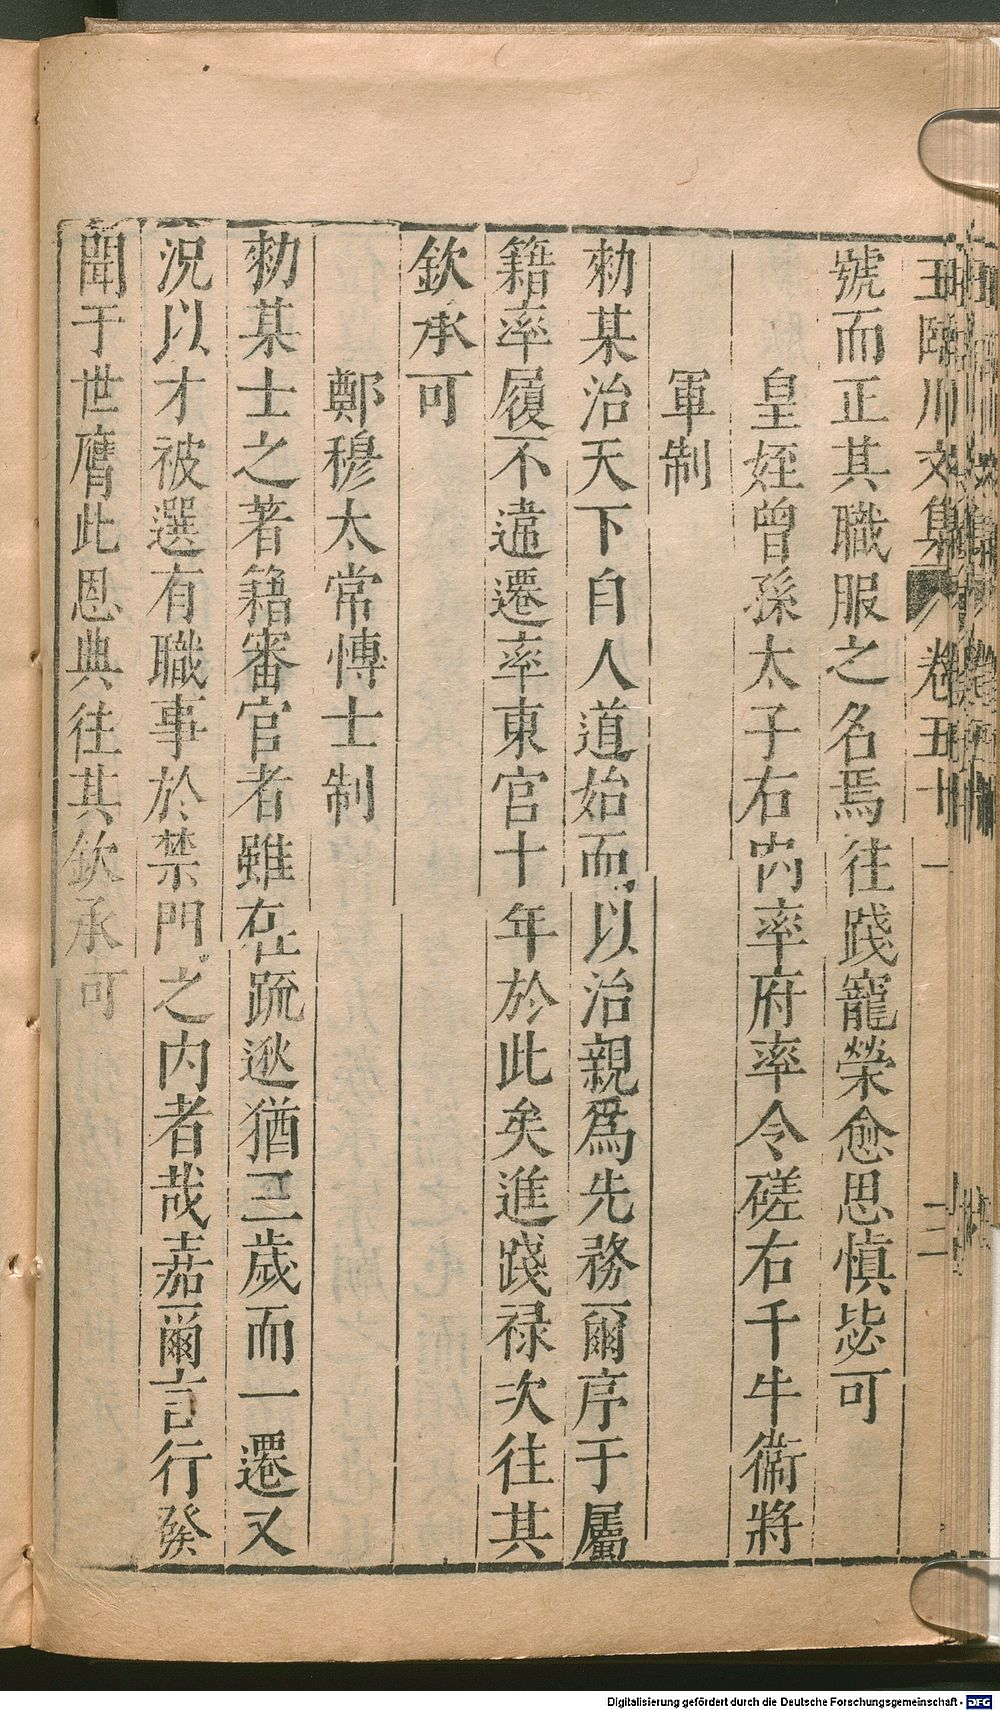 王臨川文集 卷五十 二
號而正其職服之名焉往踐寵榮愈思慎毖可
皇姪曾孫太子右內率府率令磋右千牛衞將
軍制
勑某治天下自人道始而以治親爲先務爾序于屬
籍率履不違遷率東官十年於此矣進踐禄次往其
欽承可
鄭穆太常愽士制
勑某士之著籍審官者雖在疏逖猶三歲而一遷又
況以才被選有職事於禁門之内者哉嘉爾言行發
聞于世膺此恩典往其欽承可
Digitalisierung gefördert durch die Deutsche Forschungsgemeinschaft - DFG